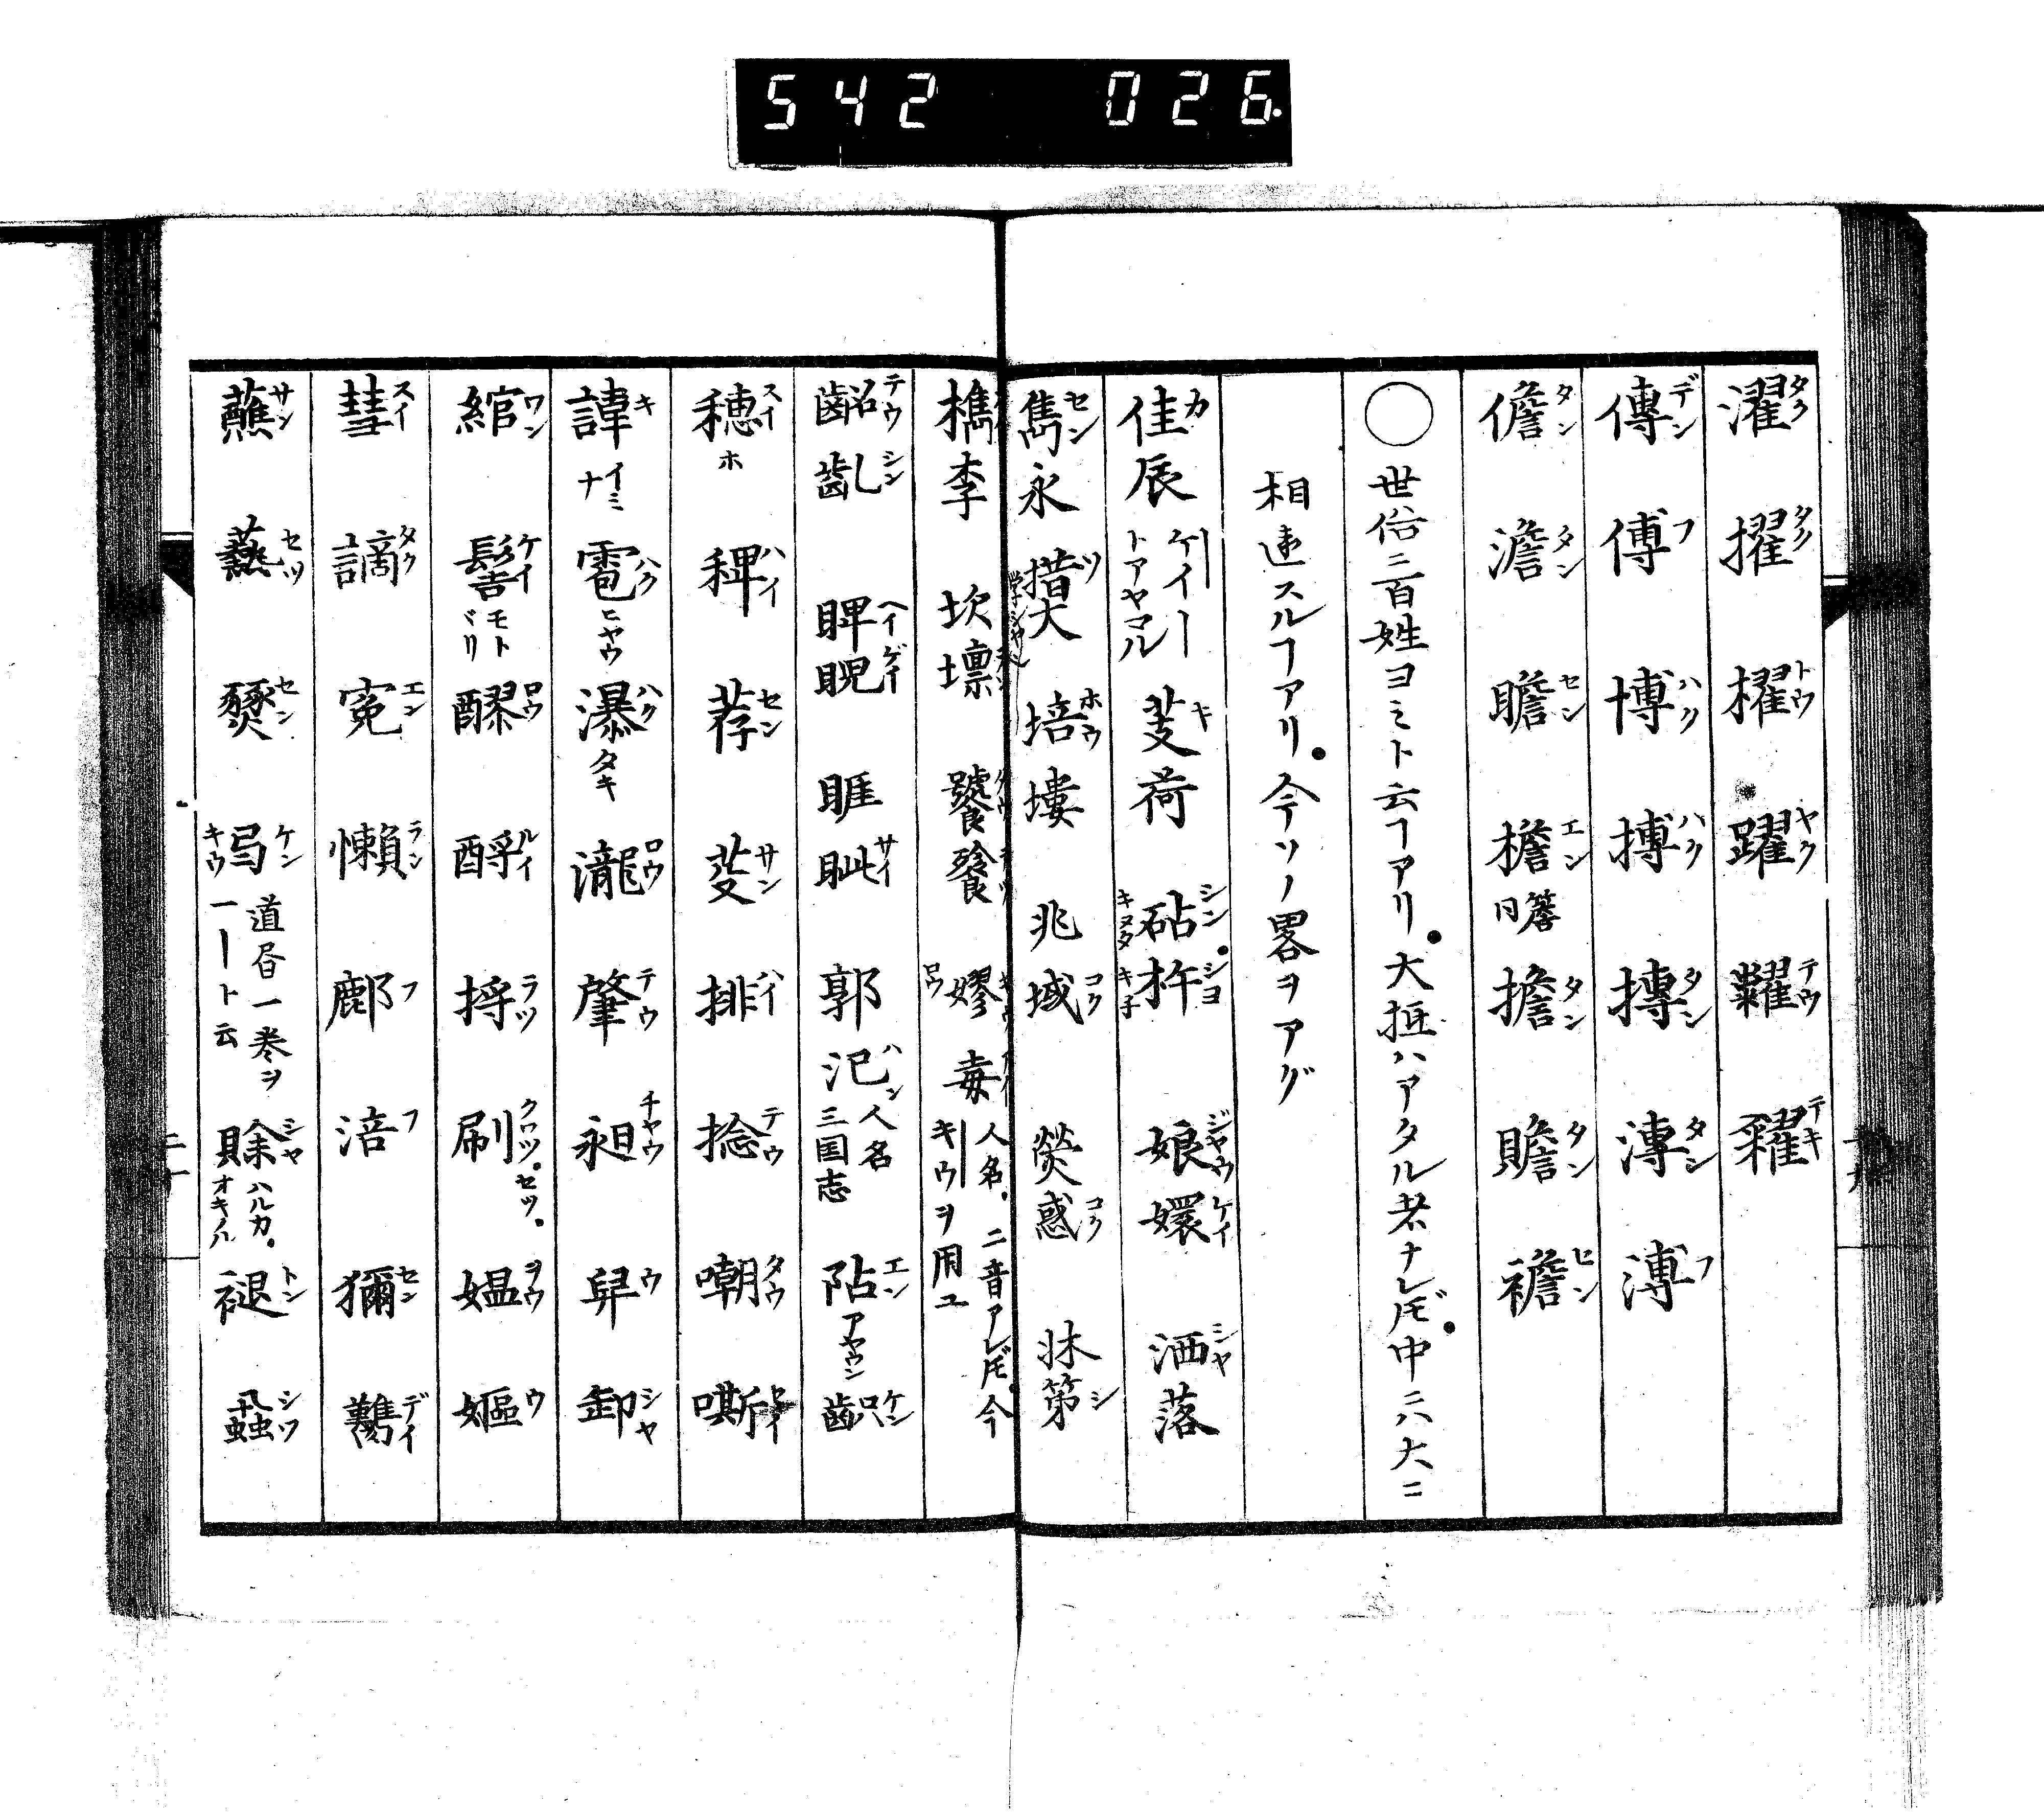 542 026.
濯タク 擢タク 櫂トウ 躍ヤク 糶テウ 糴テキ
傳デン 傅フ 博ハク 搏ハク 摶タン 漙タン 溥フ
儋タン 澹タン 瞻セン 檐エン 同簷 擔タン 贍タン 襜セン
○世俗ニ百姓ヨミト云フアリ。大抵ハアタル者ナレ𪜈。中ニハ大ニ
相違スルヿアリ。今ソノ畧ヲアグ
佳カ辰 ケイートアヤマル 芰キ荷 砧シン。キヌタ 杵シヨ キ子 娘ジヤウ嬛ケイ 洒シヤ落
雋セン永 措ツ大 培ホウ塿 兆域コク 熒惑コク 牀第シ
檇李 坎壈 饕タウ餮テツ 嫪ロウ毐 人名。二音アレ𪜈。今キウヲ用ユ
齠テウ齔シン 睥ヘイ睨ゲイ 睚眦サイ 郭汜ハン 人名三国志 阽エン アヤウシ 齞ケン
穂スイ ホ 稗ハイ 荐セン 芟サン 排ハイ 捻テウ 嘲タウ 嘶セイ
諱キ イミナ 雹ハク ヒヤウ 瀑ハク タキ 瀧ロウ 肇テウ 昶チヤウ 舁ウ 卸シヤ
綰ワン 髻ケイ モトヾリ 醪ロウ 酹ルイ 捋ラツ 刷クワツ。セツ。 媼ヲウ 嫗ウ
彗スイ 謫タク 寃エン 懶ラン 鄜フ 涪フ 獮セン 臡デイ
蘸サン 爇セツ 燹セン 弓ケン キウ 道昏一巻ヲ一ート云 賖シヤ ハルカ。オキノル 褪トン 蝨シツ